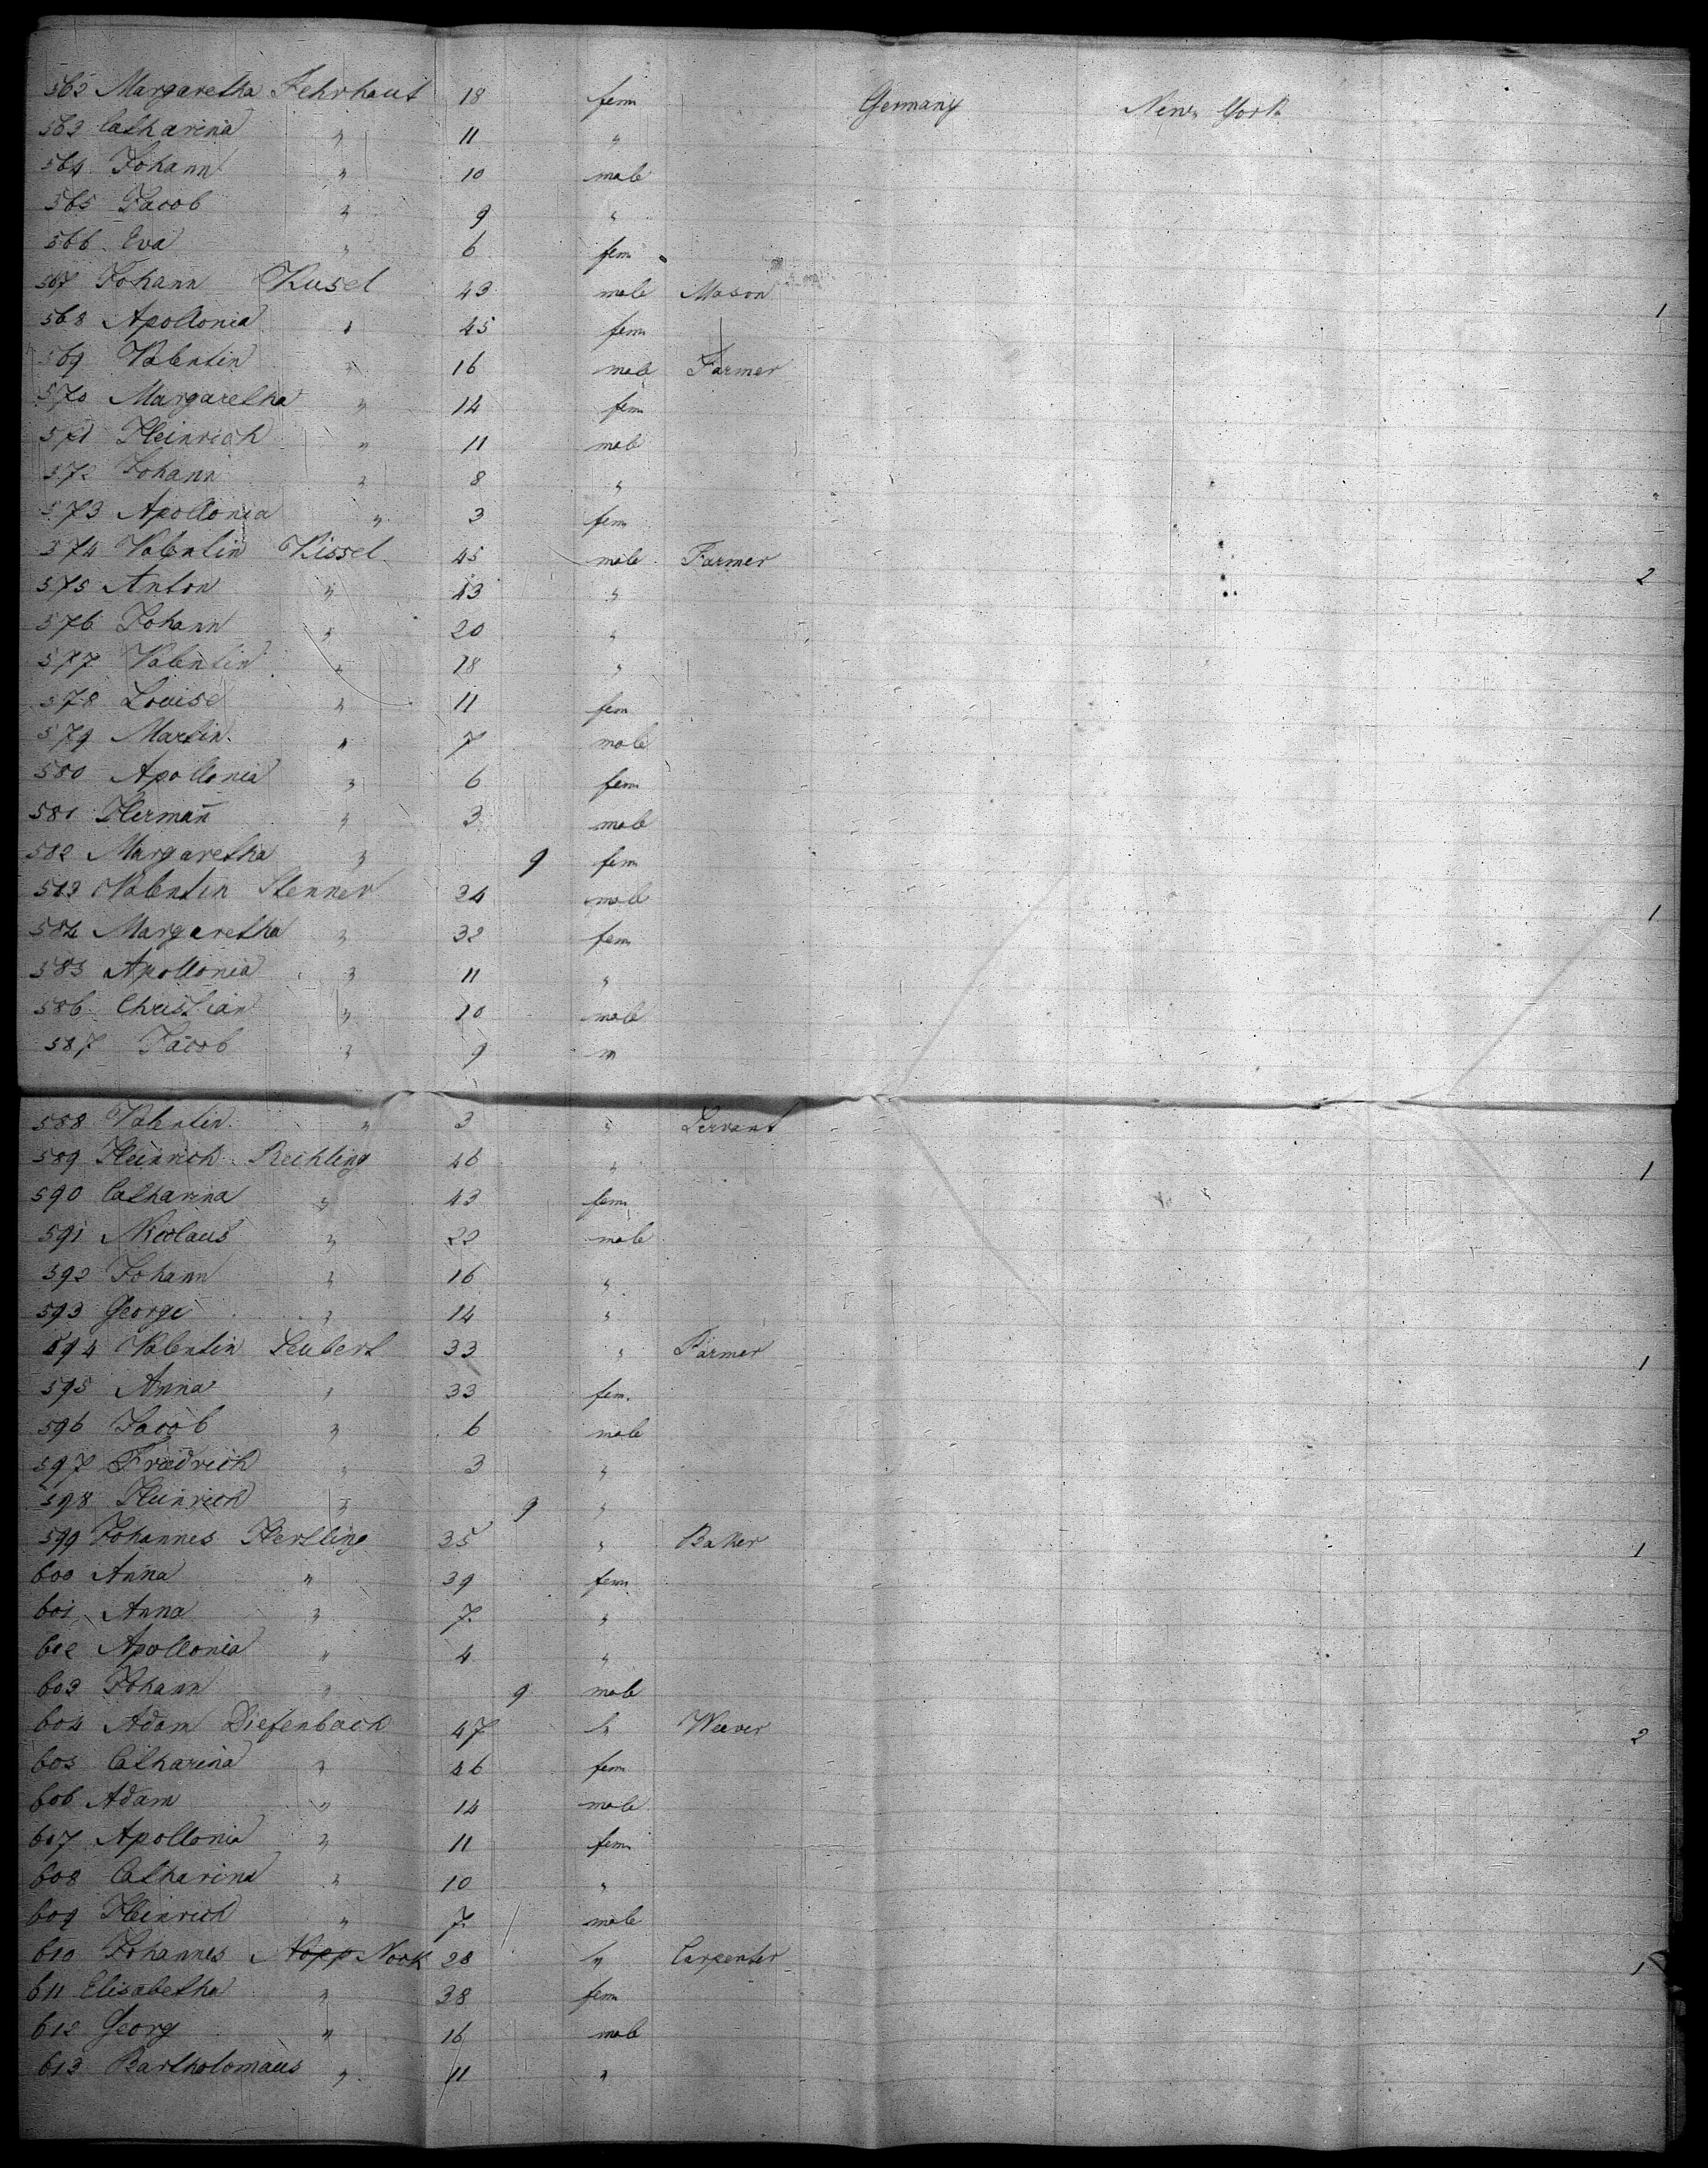 562 Margaretha Fehrhaut 18 fem Germany New York
563 Catharina " 11 "
564 Johann " 10 male
565 Jacob " 9 "
566 Eva " 6 fem
567 Johann Kusel 43 male Mason 1
568 Apollonia " 45 fem
569 Valentin " 16 male Farmer
570 Margaretha " 14 fem
571 Heinrich " 11 male
572 Johann " 8 "
573 Apollonia " 3 fem
574 Valentin Kissel 45 male Farmer 2
575 Anton " 43 "
576 Johann " 20 "
577 Valentin " 18 "
578 Louise " 11 fem
579 Martin " 7 male
580 Apollonia " 6 fem
581 Hermañ " 3 male
582 Margaretha " 9 fem
583 Valentin Stenner 34 male 1
584 Margaretha " 32 fem
585 Apollonia " 11 "
586 Christian " 10 male
587 Jacob " 9 m
588 Valentin " 3 " Servant
589 Heinrich Rechling 46 " 1
590 Catharina " 43 fem
591 Nicolaus " 22 male
592 Johann " 16 "
593 George " 14 "
594 Valentin Seubert 33 " Farmer 1
595 Anna " 33 fem.
596 Jacob " 6 male
597 Friedrich " 3 "
598 Heinrich " 9 "
599 Johannes Hertling 35 " Baker 1
600 Anna " 39 fem
601 Anna " 7 "
602 Apollonia " 4 "
603 Johann " 9 male
604 Adam Diefenbach 47 " Weaver 2
605 Catharina " 46 fem
606 Adam " 14 male
607 Apollonia " 11 fem
608 Catharina " 10 "
609 Heinrich " 7 male
610 Johannes Nopp Nock 28 " Carpenter 1
611 Elisabetha " 38 fem
612 Georg " 16 male
613 Bartholomäus " 11 "